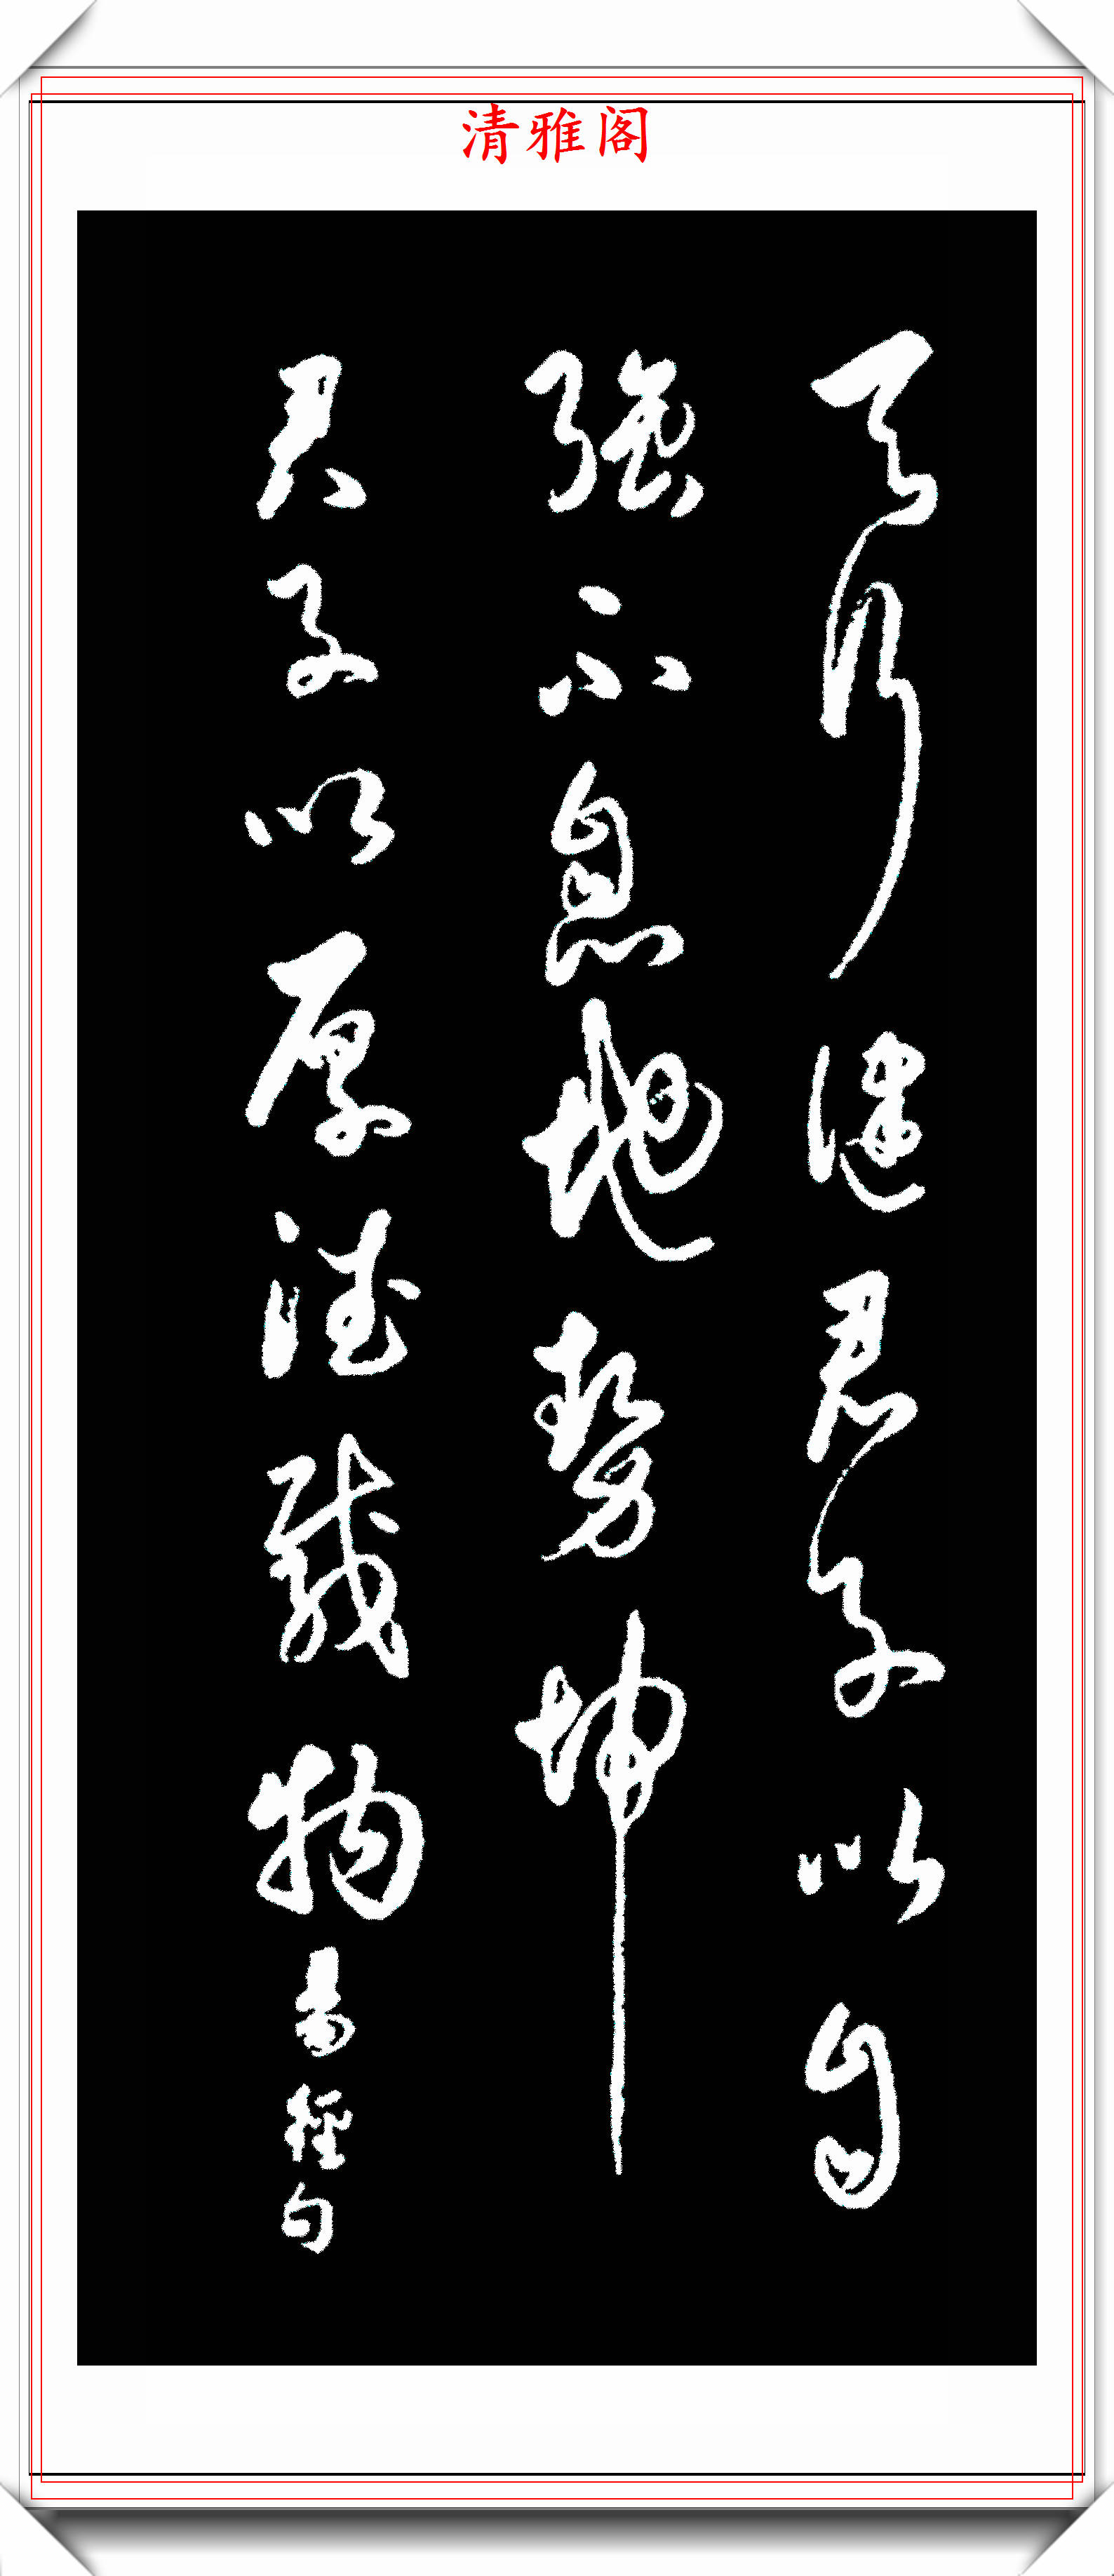 清雅阁
天行健君子以自
強不息地勢坤
君子以厚德載物
易經句